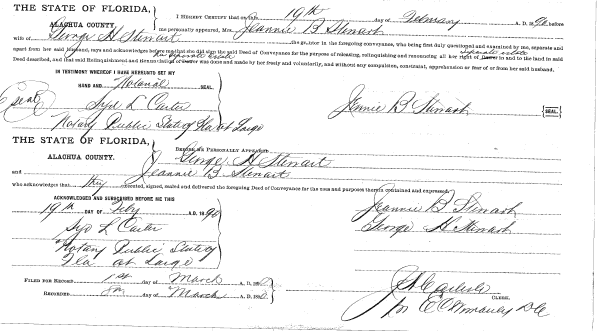 THE STATE OF FLORIDA,
ALACHUA COUNTY.
I HEREBY CERTIFY that on this 19th day of February A. D. 90 before
me personally appeared, Mrs. Jeannie B Stewart
wife of George H Stewart the grantor in the foregoing conveyance, who being first duly questioned and examined by me, separate and
separate estate
apart from her said Husband, says and acknowledges before me that she did sign the said Deed of Conveyance for the purpose of releasing, relinquishing and renouncing all her right of Dower in and to the land in said
her separate estate
Deed described, and that said Relinquishment and Renunciation of Dower was done and made by her freely and voluntarily, and without any compulsion, constraint, apprehension or fear of or from her said husband.
IN TESTIMONY WHEREOF I HAVE HEREUNTO SET MY
HAND AND Notarial SEAL.
Seal
Syd L Carter
Notary Public State of Fla at Large
Jennie B Stewart {SEAL.}
THE STATE OF FLORIDA,
ALACHUA COUNTY.
BEFORE ME PERSONALLY APPEARED
George H Stewart
and Jeannie B Stewart
who acknowledges that they executed, signed, sealed and delivered the foregoing Deed of Conveyance for the uses and purposes therein contained and expressed.
ACKNOWLEDGED AND SUBSCRIBED BEFORE ME THIS
19th DAY OF Feby A.D. 1890
Syd L Carter
Notary Public State of
Fla at Large
Jeannie B Stewart
George H Stewart
FILED FOR RECORD 1st day of March A. D. 1890
RECORDED day of March A. D. 1890
CLERK.
Per E C DC